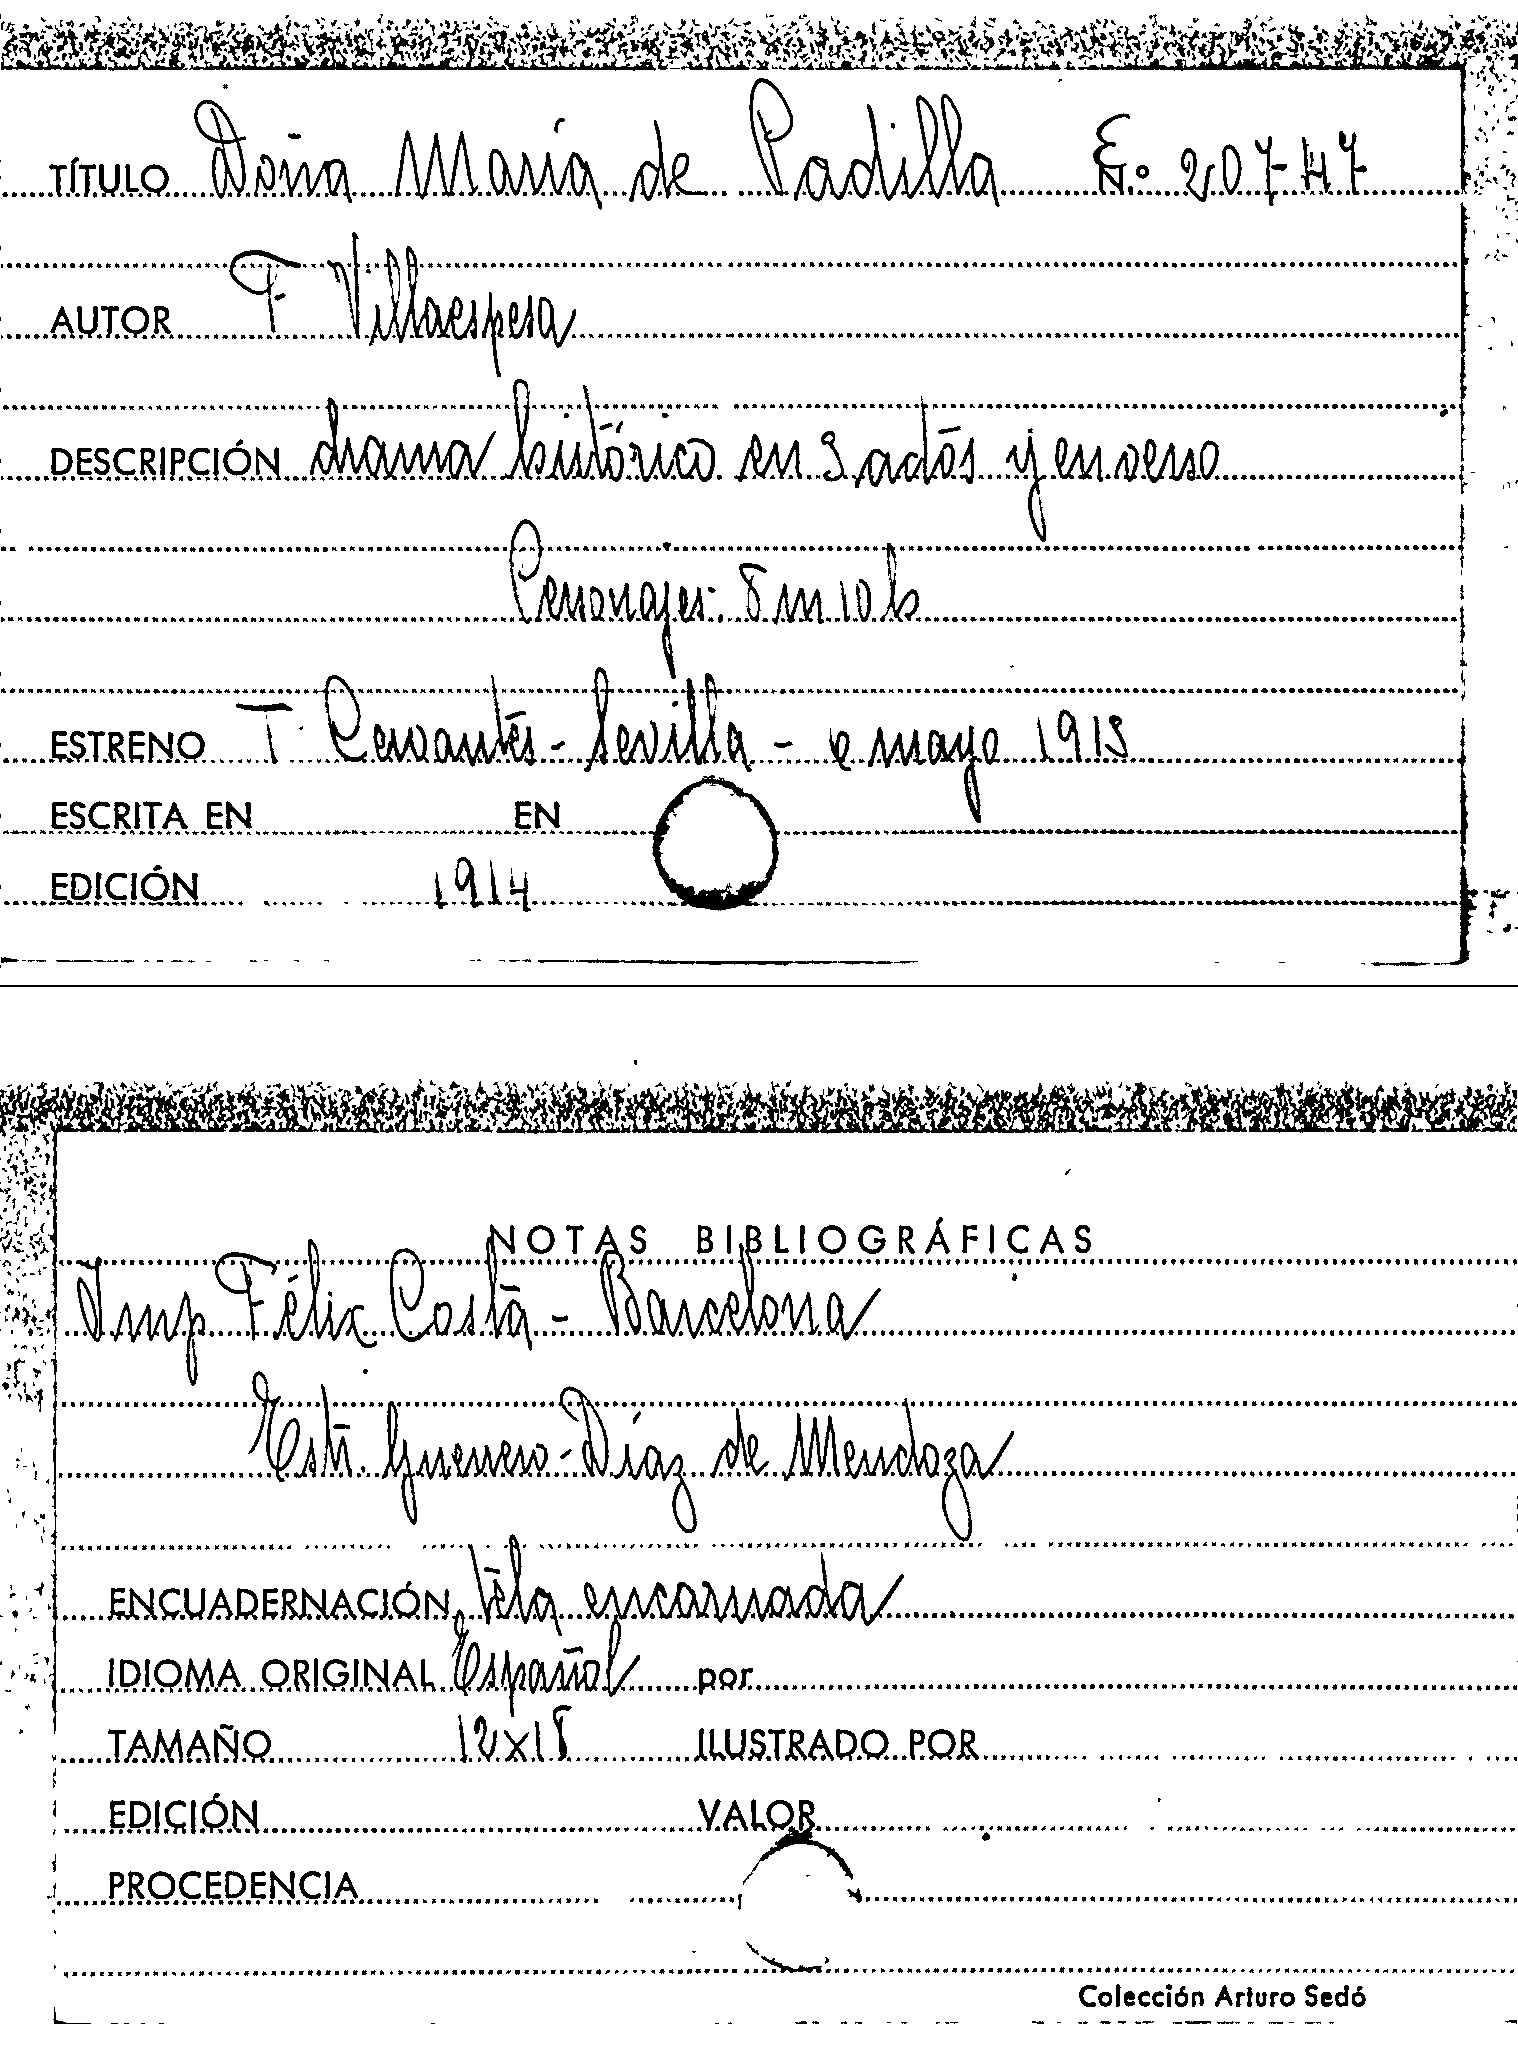 TÍTULO Doña María de Padilla E. N.º 207-47
AUTOR F Villaespesa
DESCRIPCIÓN drama histórico en 3 actos y en verso
Personajes: 8 m 10 h
ESTRENO T. Cervantes - Sevilla - mayo 1913
ESCRITA EN EN
EDICIÓN 1914
NOTAS BIBLIOGRÁFICAS
Imp Félix Costa - Barcelona
Estr. Guerrero-Díaz de Mendoza
ENCUADERNACIÓN tela encarnada
IDIOMA ORIGINAL Español por
TAMAÑO 12x18 ILUSTRADO POR
EDICIÓN VALOR
PROCEDENCIA
Colección Arturo Sedó